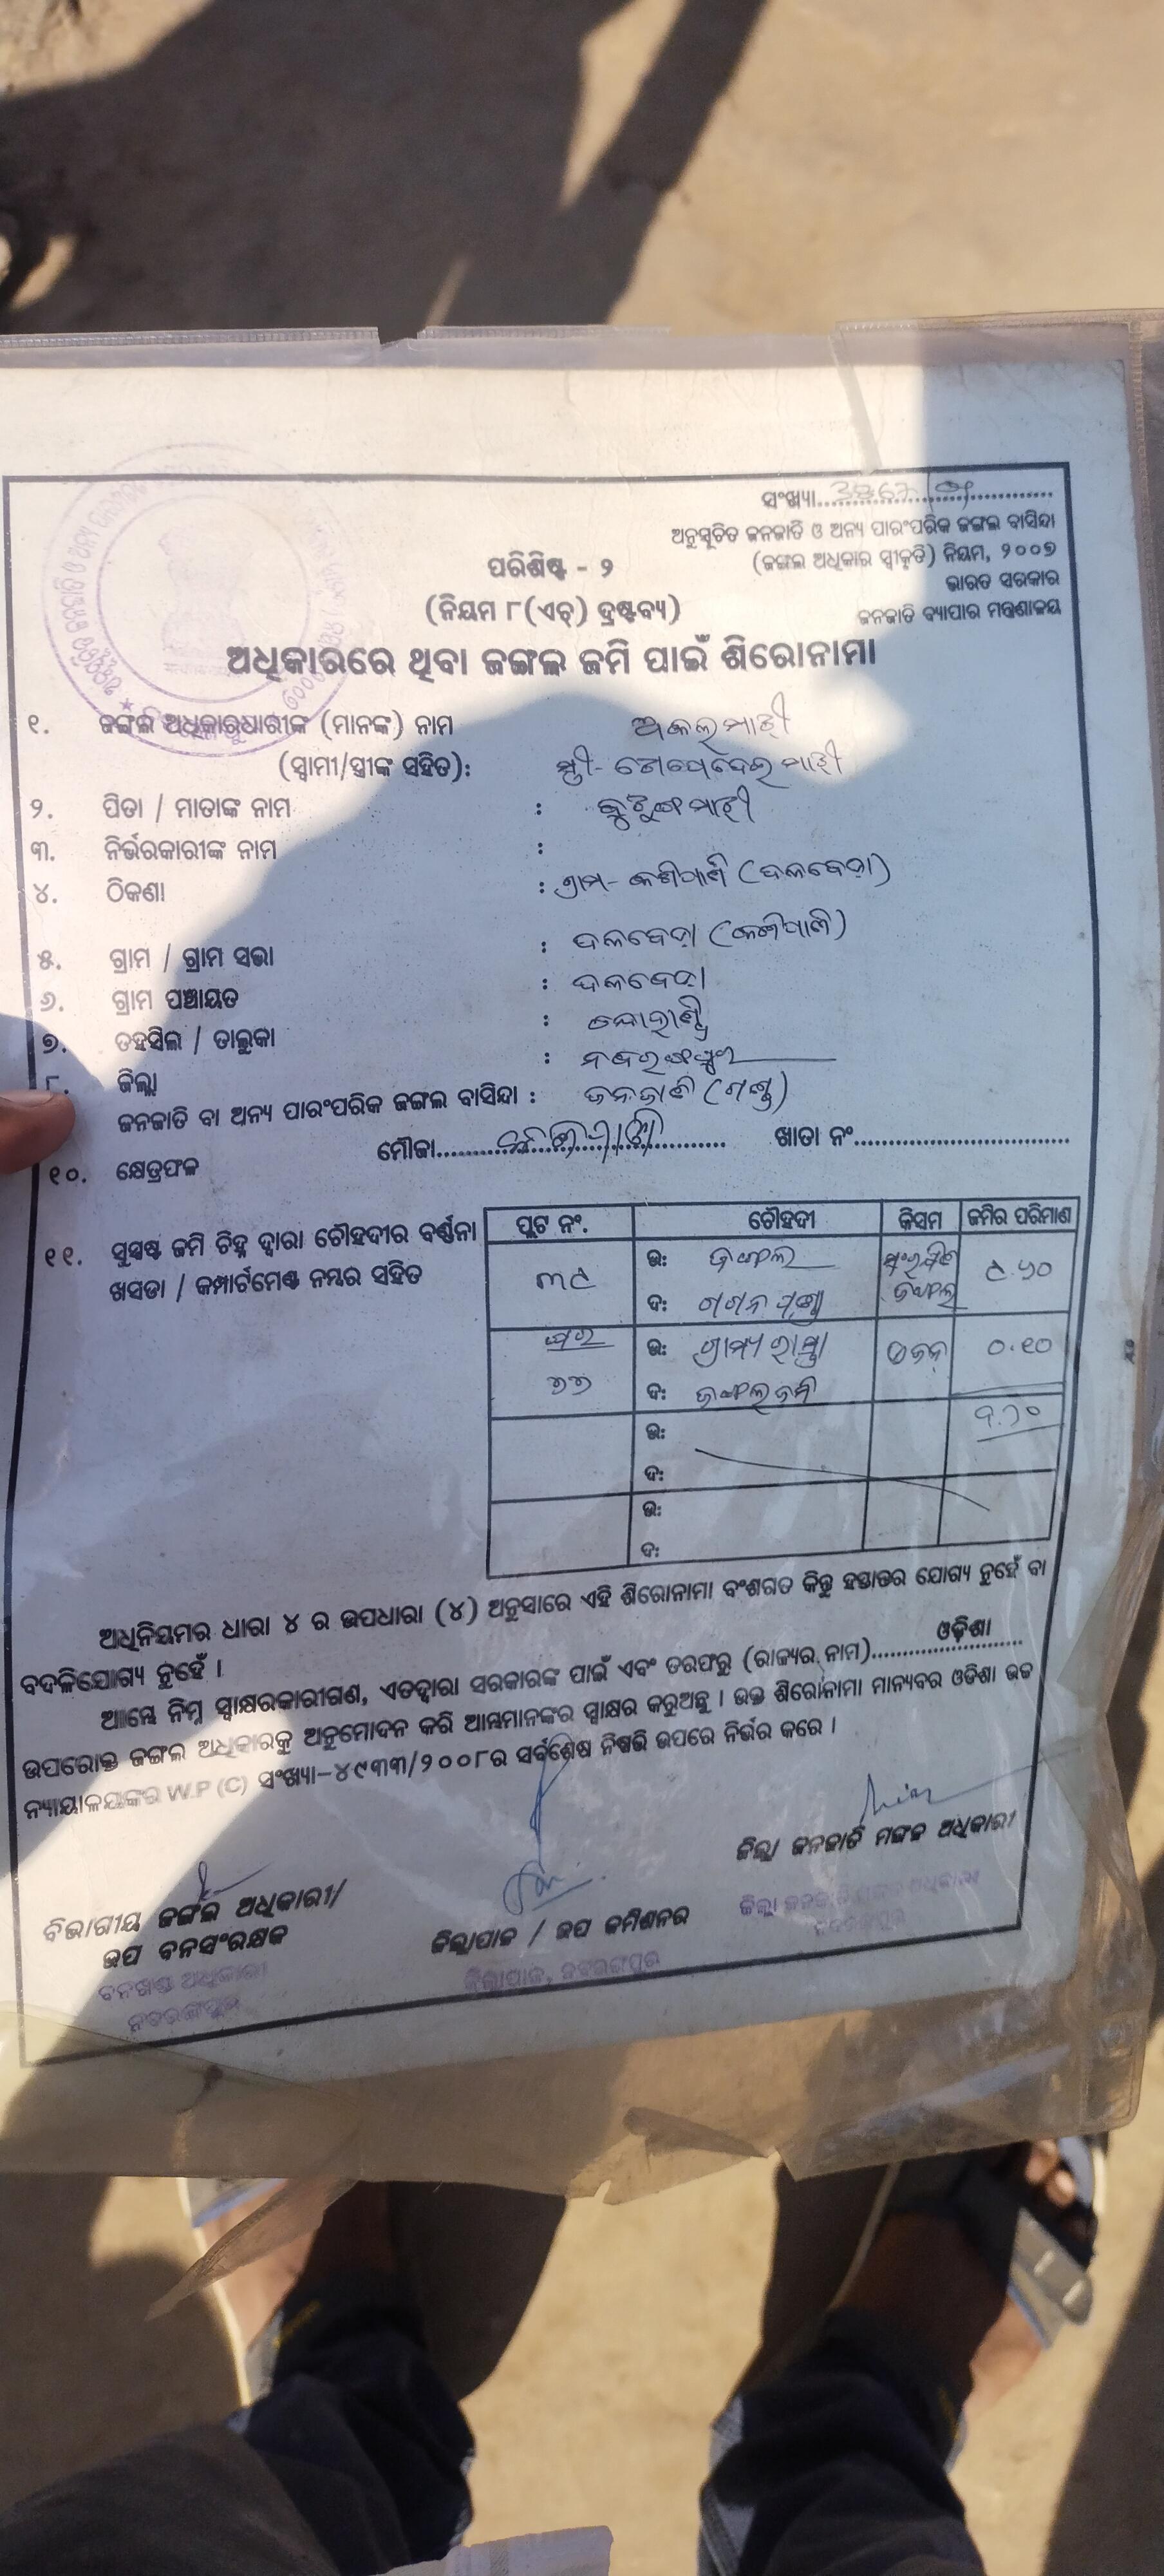 ସଂଖ୍ୟା
ଅନୁସୂଚିତ ଜନଜାତି ଓ ଅନ୍ୟ ପାରଂପରିକ ଜଙ୍ଗଲ ବାସିନ୍ଦା
(ଜଙ୍ଗଲ ଅଧିକାର ସ୍ୱୀକୃତି) ନିୟମ, ୨୦୦୭
ଭାରତ ସରକାର
ଜନଜାତି ବ୍ୟାପାର ମନ୍ତ୍ରଣାଳୟ
ପରିଶିଷ୍ଟ - ୨
(ନିୟମ ୮(ଏଚ୍) ଦ୍ରଷ୍ଟବ୍ୟ)
ଅଧିକାରରେ ଥିବା ଜଙ୍ଗଲ ଜମି ପାଇଁ ଶିରୋନାମା
୧. ଜଙ୍ଗଲ ଅଧିକାରଧାରୀଙ୍କ (ମାନଙ୍କ) ନାମ ଅକଲ ମାଝୀ
(ସ୍ୱାମୀ/ସ୍ତ୍ରୀଙ୍କ ସହିତ): ସ୍ତ୍ରୀ- ମାଝୀ
୨. ପିତା / ମାତାଙ୍କ ନାମ : ମାଝୀ
୩. ନିର୍ଭରକାରୀଙ୍କ ନାମ :
୪. ଠିକଣା : ଗ୍ରାମ- (ଦଳବେଡ଼ା)
୫. ଗ୍ରାମ / ଗ୍ରାମ ସଭା : ଦଳବେଡ଼ା
୬. ଗ୍ରାମ ପଞ୍ଚାୟତ : ଦଳବେଡ଼ା
୭. ତହସିଲ / ତାଲୁକା :
୮. ଜିଲ୍ଲା : ନବରଙ୍ଗପୁର
ଜନଜାତି ବା ଅନ୍ୟ ପାରଂପରିକ ଜଙ୍ଗଲ ବାସିନ୍ଦା : ଜନଜାତି (ଗଣ୍ଡ)
୧୦. କ୍ଷେତ୍ରଫଳ ମୌଜା ଖାତା ନଂ
୧୧. ସୁସ୍ପଷ୍ଟ ଜମି ଚିହ୍ନ ଦ୍ୱାରା ଚୌହଦୀର ବର୍ଣ୍ଣନା
ଖସଡା / କମ୍ପାର୍ଟମେଣ୍ଟ ନମ୍ବର ସହିତ
ପ୍ଲଟ ନଂ. ଚୌହଦୀ କିସମ ଜମିର ପରିମାଣ
ଉ: ଜଙ୍ଗଲ ସଂରକ୍ଷିତ
ଦ: ଗଗନ ଜଙ୍ଗଲ
ଘର ଉ: ଗ୍ରାମ୍ୟ ରାସ୍ତା ୦.୧୦
୨୨ ଦ: ଜଙ୍ଗଲ ଜମି
ଉ:
ଦ:
ଉ:
ଦ:
ଅଧିନିୟମର ଧାରା ୪ ର ଉପଧାରା (୪) ଅନୁସାରେ ଏହି ଶିରୋନାମା ବଂଶଗତ କିନ୍ତୁ ହସ୍ତାନ୍ତର ଯୋଗ୍ୟ ନୁହେଁ ବା
ବଦଳିଯୋଗ୍ୟ ନୁହେଁ ।
ଆମ୍ଭେ ନିମ୍ନ ସ୍ୱାକ୍ଷରକାରୀଗଣ, ଏତଦ୍ୱାରା ସରକାରଙ୍କ ପାଇଁ ଏବଂ ତରଫରୁ (ରାଜ୍ୟର ନାମ) ଓଡ଼ିଶା
ଉପରୋକ୍ତ ଜଙ୍ଗଲ ଅଧିକାରକୁ ଅନୁମୋଦନ କରି ଆମ୍ଭମାନଙ୍କର ସ୍ୱାକ୍ଷର କରୁଅଛୁ । ଉକ୍ତ ଶିରୋନାମା ମାନ୍ୟବର ଓଡିଶା ଉଚ୍ଚ
ନ୍ୟାୟାଳୟଙ୍କର W.P (C) ସଂଖ୍ୟା-୪୯୩୩/୨୦୦୮ର ସର୍ବଶେଷ ନିଷ୍ପତ୍ତି ଉପରେ ନିର୍ଭର କରେ ।
ଜିଲ୍ଲା ଜନଜାତି ମଙ୍ଗଳ ଅଧିକାରୀ
ବିଭାଗୀୟ ଜଙ୍ଗଲ ଅଧିକାରୀ/
ଉପ ବନସଂରକ୍ଷକ
ଜିଲ୍ଲାପାଳ / ଉପ କମିଶନର
ବନଖଣ୍ଡ ଅଧିକାରୀ
ନବରଙ୍ଗପୁର
ଜିଲ୍ଲାପାଳ, ନବରଙ୍ଗପୁର